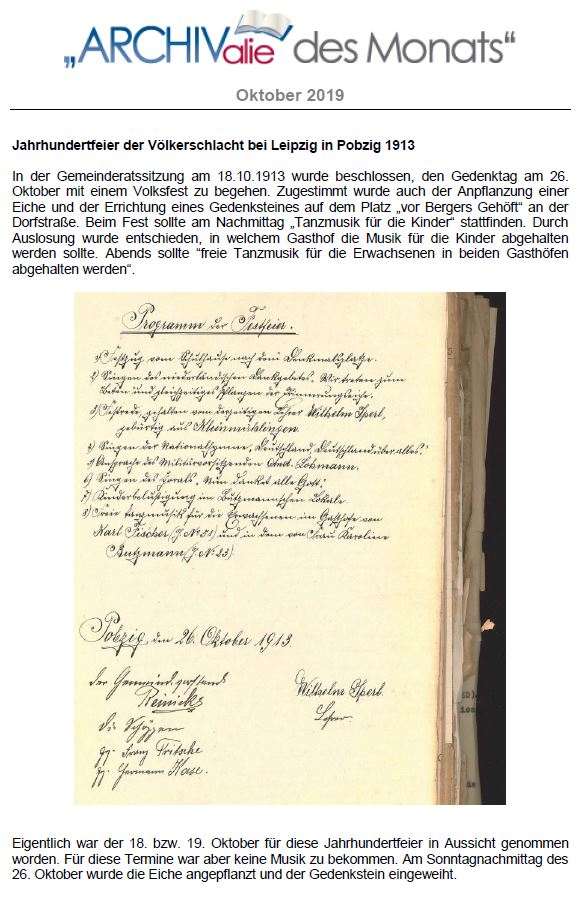 „ARCHIValie des Monats“
Oktober 2019
Jahrhundertfeier der Völkerschlacht bei Leipzig in Pobzig 1913
In der Gemeinderatssitzung am 18.10.1913 wurde beschlossen, den Gedenktag am 26.
Oktober mit einem Volksfest zu begehen. Zugestimmt wurde auch der Anpflanzung einer
Eiche und der Errichtung eines Gedenksteines auf dem Platz „vor Bergers Gehöft“ an der
Dorfstraße. Beim Fest sollte am Nachmittag „Tanzmusik für die Kinder“ stattfinden. Durch
Auslosung wurde entschieden, in welchem Gasthof die Musik für die Kinder abgehalten
werden sollte. Abends sollte “freie Tanzmusik für die Erwachsenen in beiden Gasthöfen
abgehalten werden“.
Programm der Festfeier.
1) Festzug vom Schulhause nach dem Denkmalsplatze.
2) Singen des niederländischen Dankgebetes, Wir treten zum
Beten und gleichzeitiges Pflanzen der Erinnerungseiche.
3) Festrede, gehalten vom derzeitigen Lehrer Wilhelm Sperl,
gebürtig aus Kleinmühlingen.
4) Singen der Nationalhymne, Deutschland, Deutschland über alles!
5) Ansprache des Militärvorsitzenden Lohmann.
6) Singen des Chorals, Nun danket alle Gott!
7) Kinderbelustigung im Butzmannschen Lokale
8) Freie Tanzmusik für die Erwachsenen im Gasthofe von
Karl Fischer (J. No 51) und in dem von Frau Karoline
Butzmann (J. No 23)
Pobzig den 26. Oktober 1913.
der Gemeindevorstand
Reinicke
Wilhelm Sperl.
Lehrer.
die Schöppen
gz. Franz Fritsche
gz. Hermann Kase.
Eigentlich war der 18. bzw. 19. Oktober für diese Jahrhundertfeier in Aussicht genommen
worden. Für diese Termine war aber keine Musik zu bekommen. Am Sonntagnachmittag des
26. Oktober wurde die Eiche angepflanzt und der Gedenkstein eingeweiht.